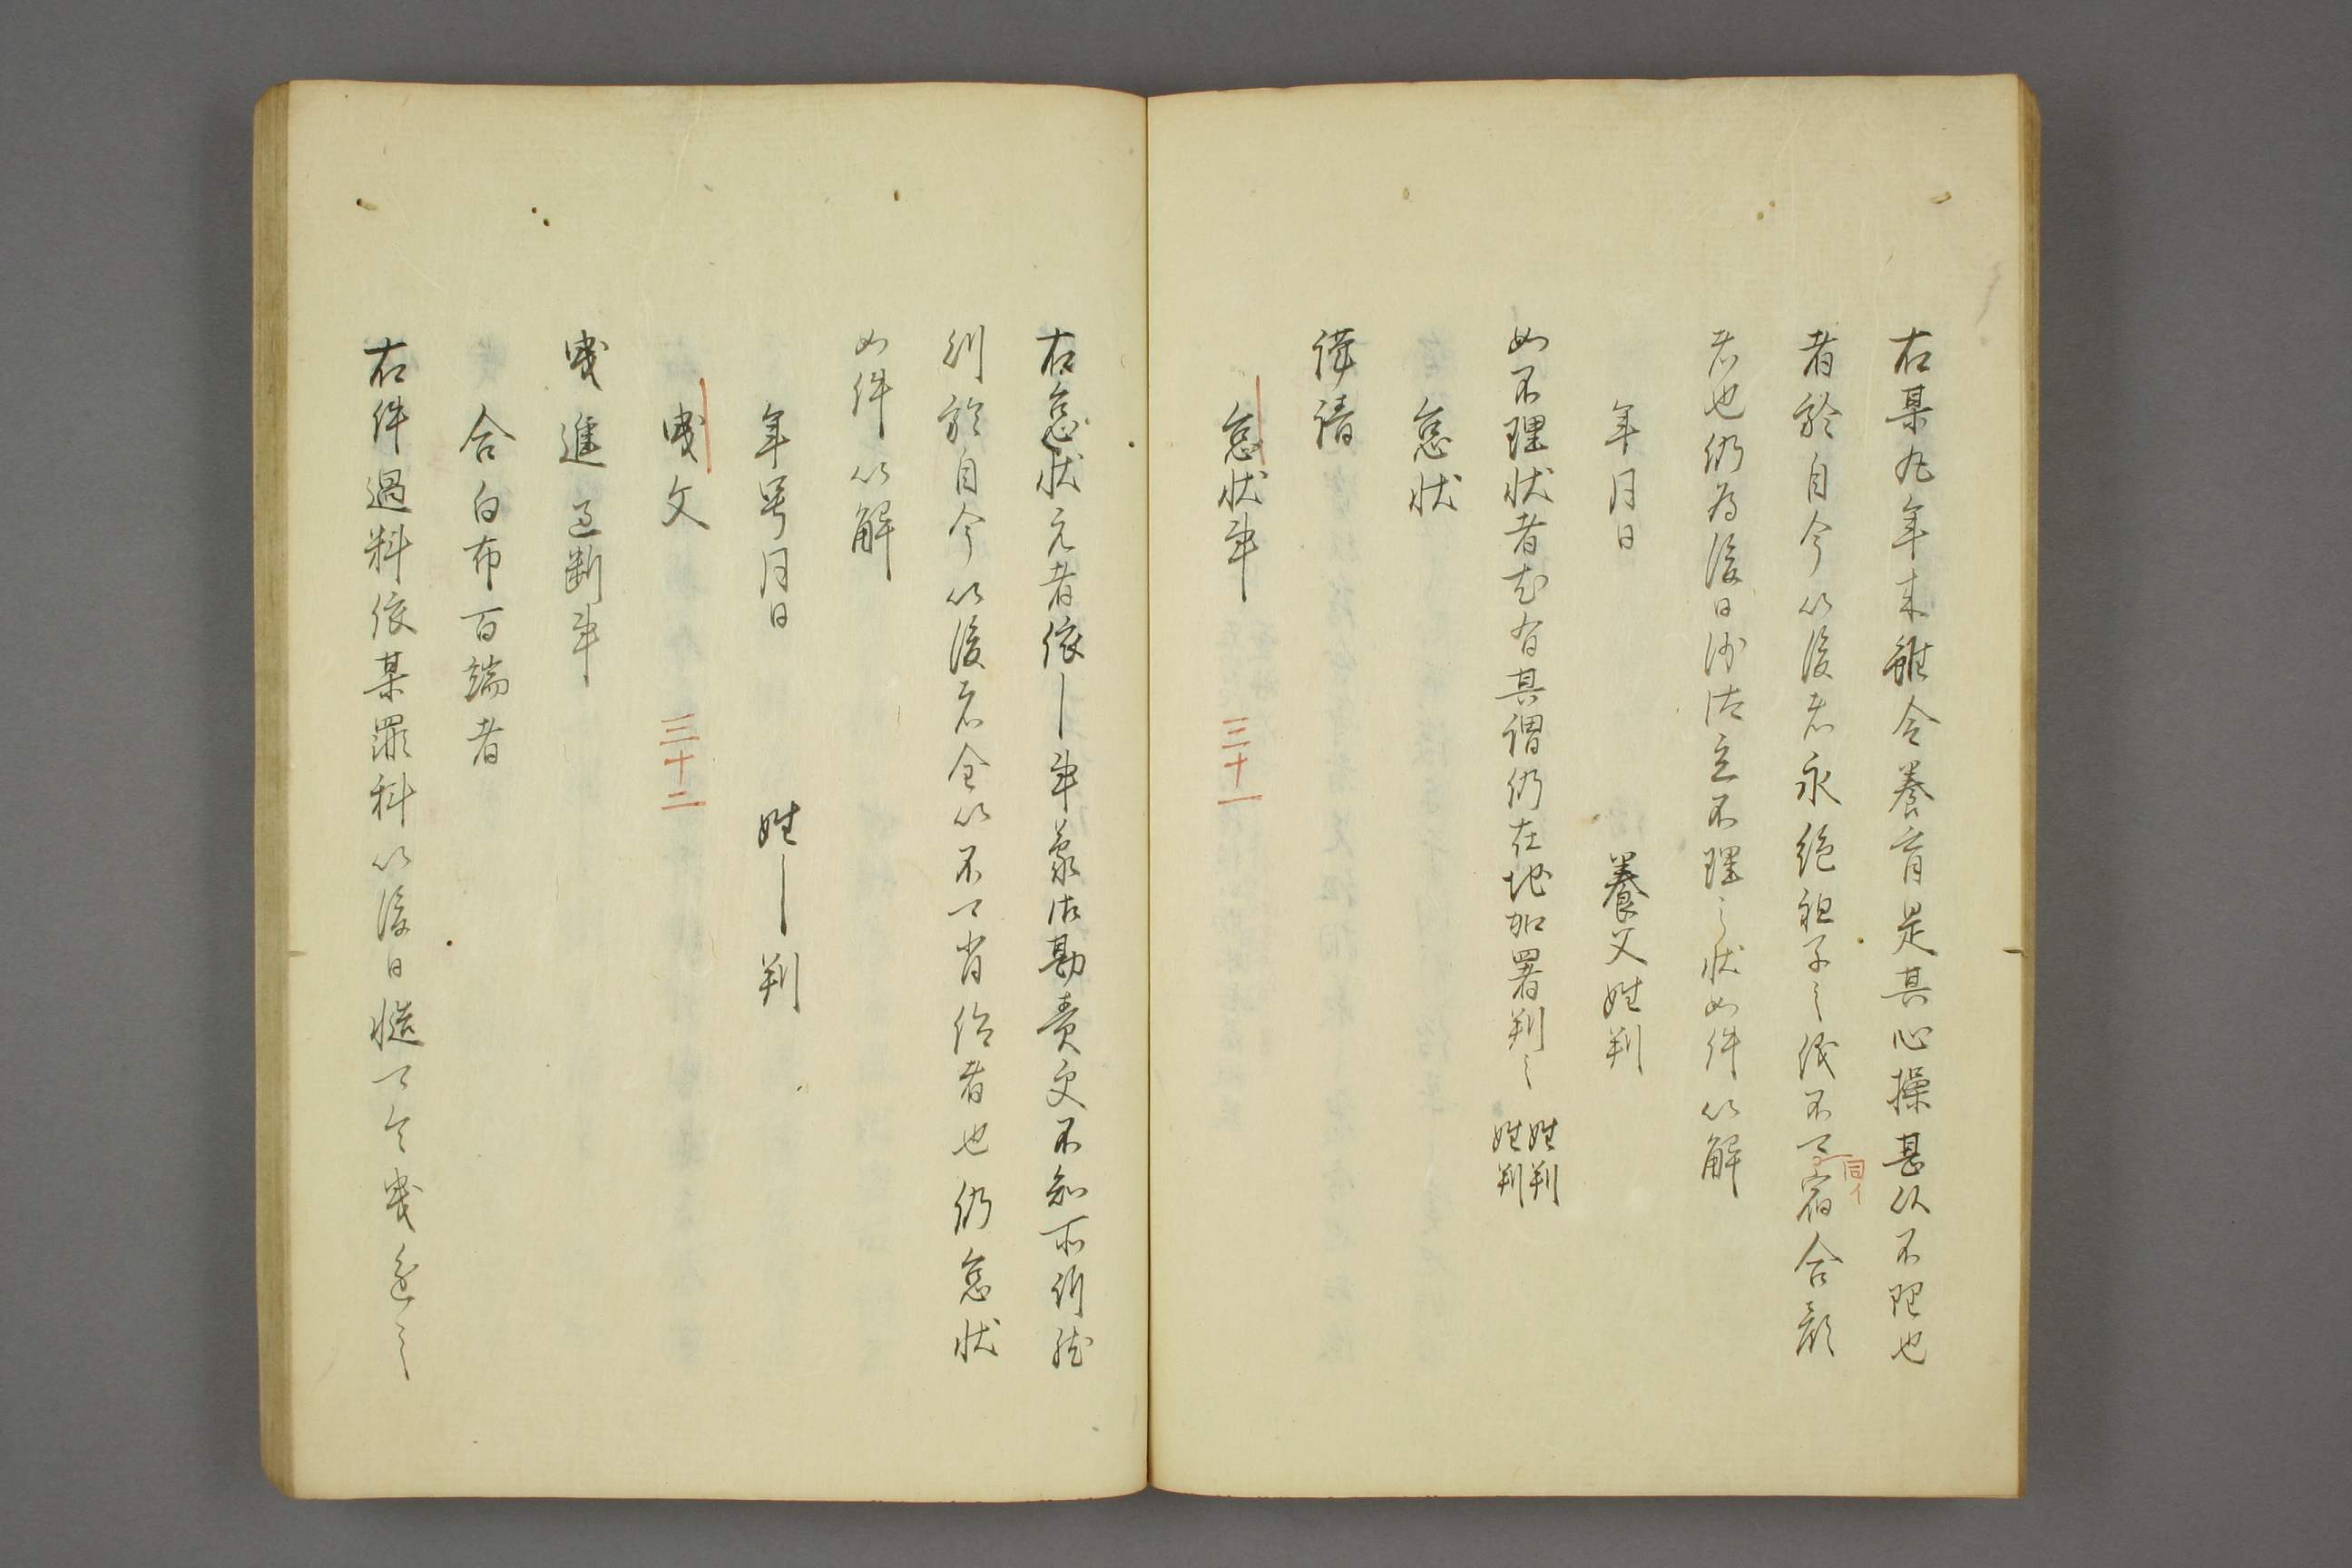 右某丸年来雖令養育是其心操甚以不理也
者於自今以後者永絶祖子之儀不可宿合顔
同イ
者也仍為後日沙汰立不理之状如件以解
年月日 養父姓判
如不理状者尤有其謂仍在地加署判之 姓判 姓判
怠状
謹請
怠状事 三十一
右怠状元者依｜事蒙御勘責更不知所行然
則於自今以後者全以不可背給者也仍怠状
如件以解
年号月日 姓｜判
曳文 三十二
曳進 過断事
合白布百端者
右件過料依某罪科以後日慥可令曳進之